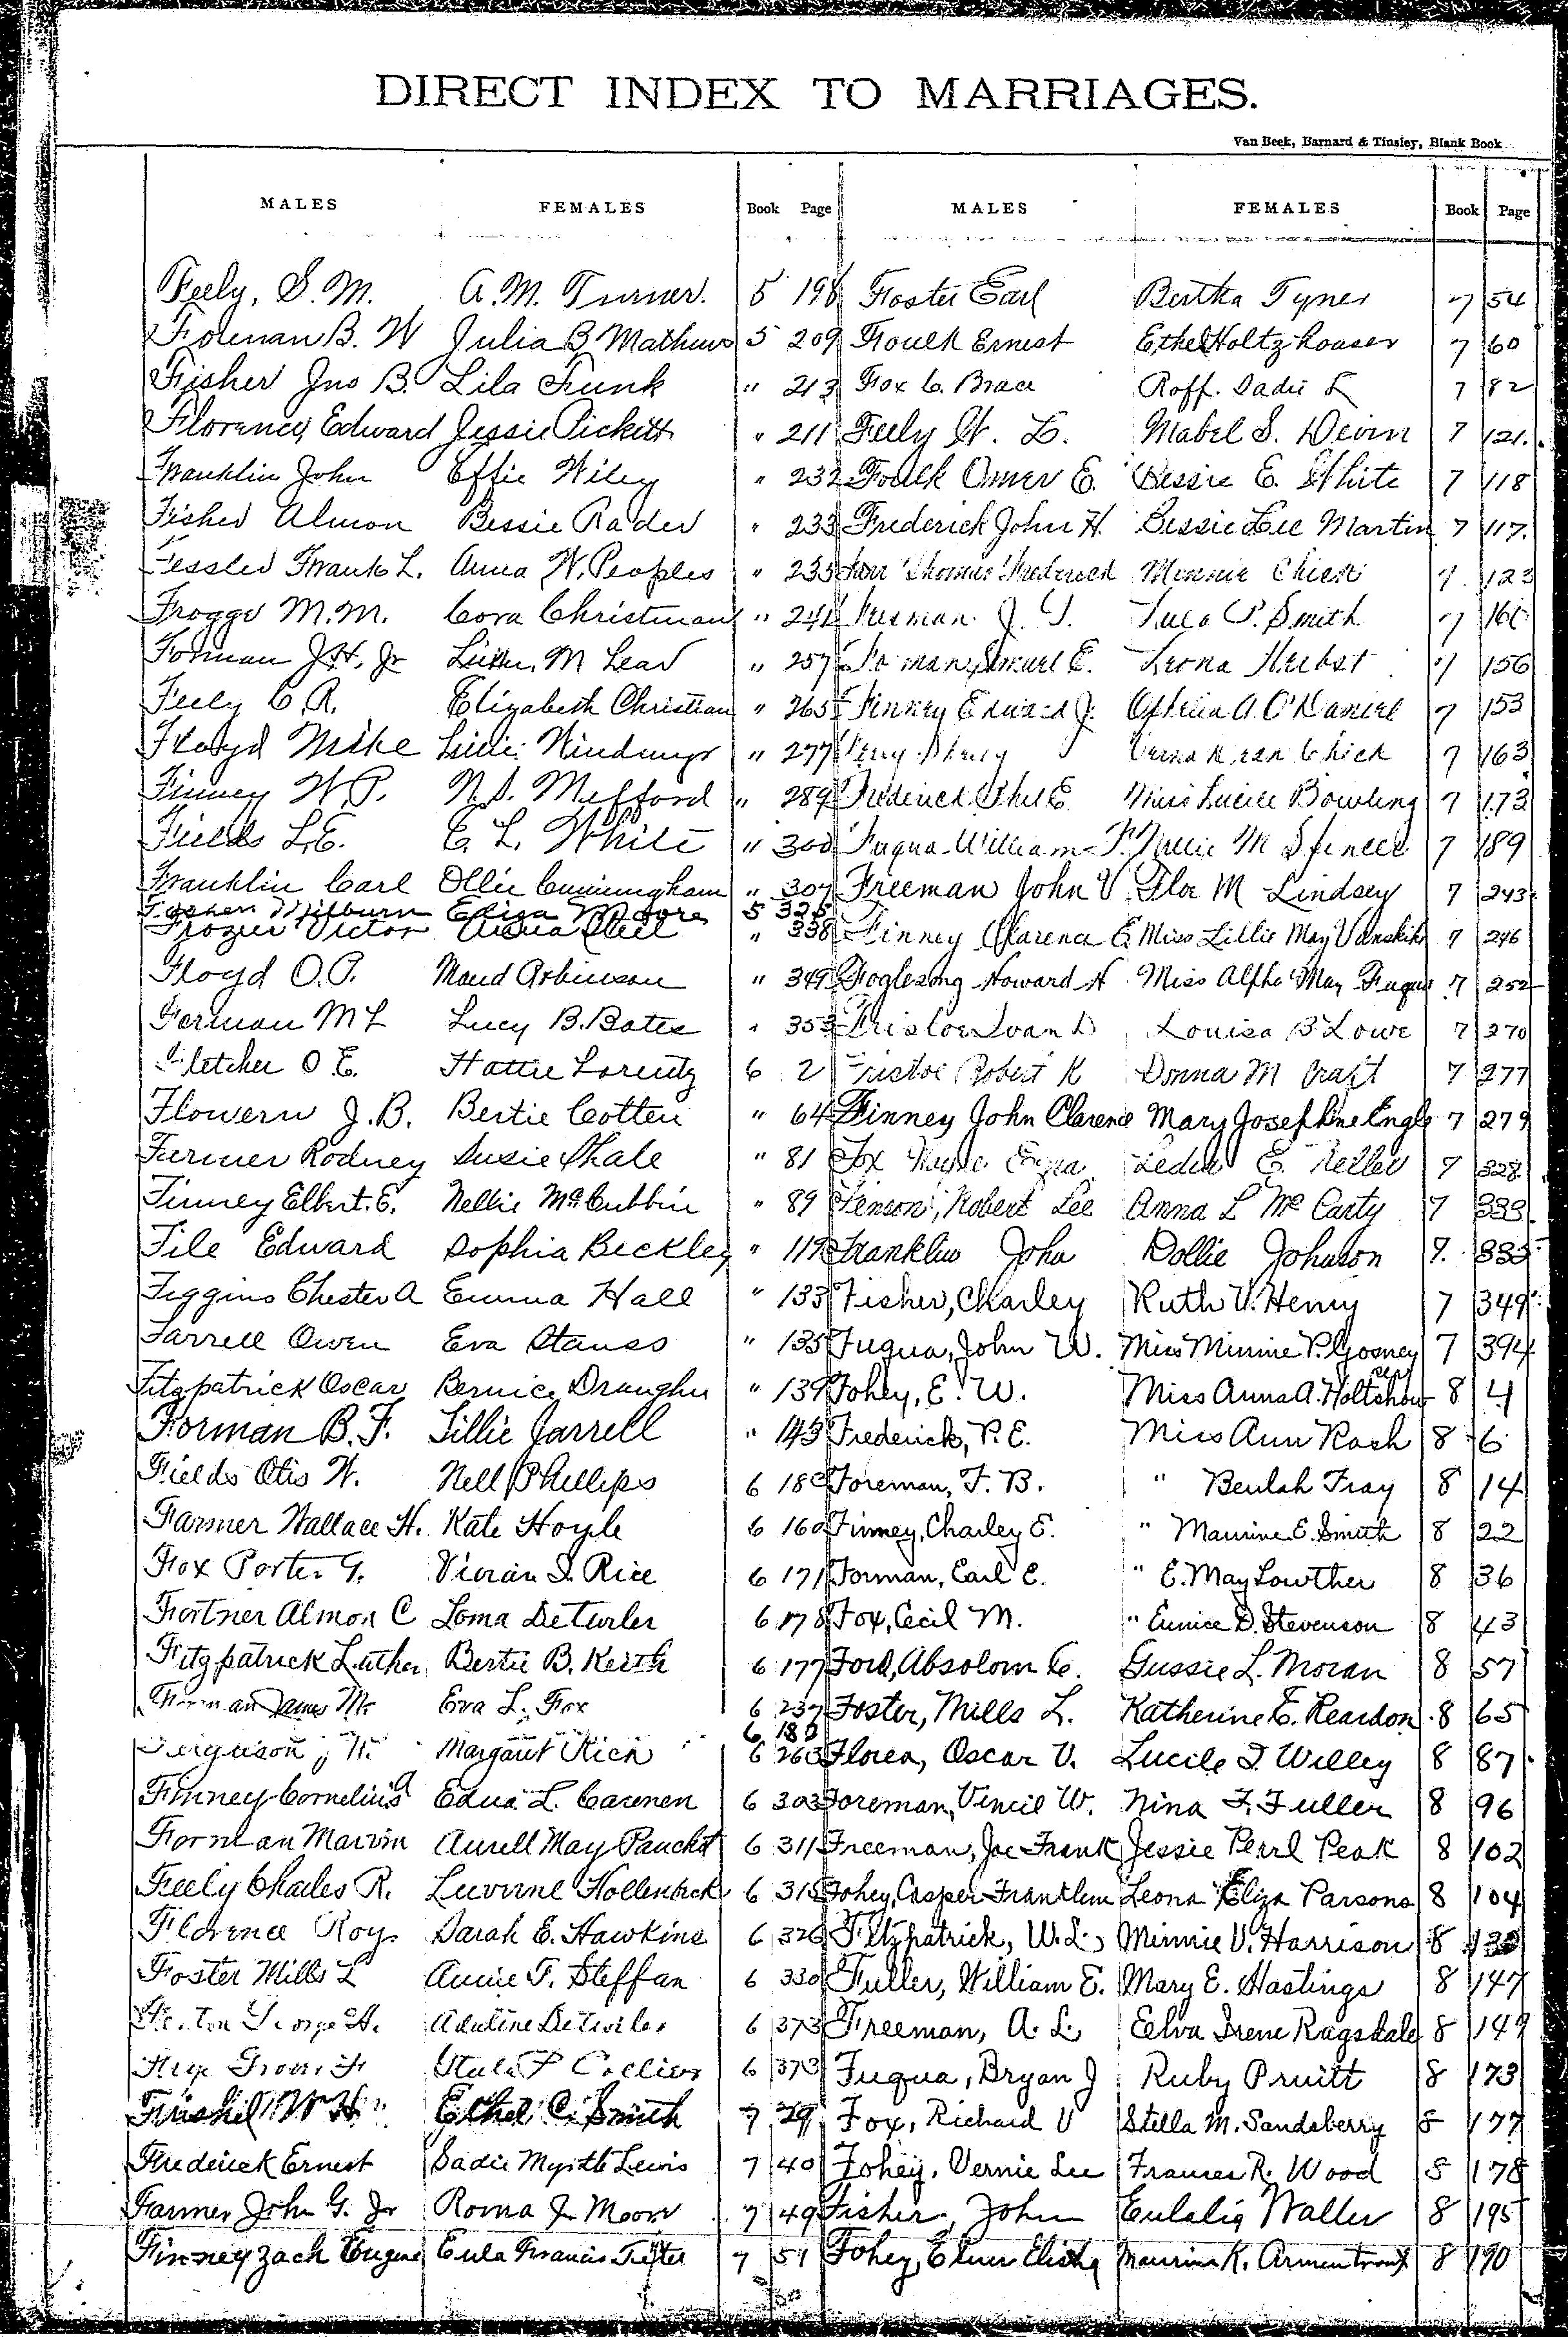 DIRECT INDEX TO MARRIAGES.
Van Beek, Barnard & Tinsley, Blank Book
MALES FEMALES Book Page MALES FEMALES Book Page
Feely, S. M. A. M. Turner. 5 198 Foster Earl Bertha Tyner 7 54
B. W Julia B Mathews 5 209 Foulk Ernest Ethel Holtzhouser 7 60
Fisher Jno B. Lila Funk " 213 Fox C. Brace Roff. Sadie L 7 82
Florence, Edward Jessie Pickett " 211 Feely W. L. Mabel S. Devin 7 121.
Franklin John Effie Wiley " 232 Foulk Omer E. Bessie E. White 7 118
Fisher Almon Bessie Rader " 233 Frederick John H. Bessie Lee Martin 7 117.
Fessler Frank L. Anna W. Peoples " 235 Thomas Frederick Minnie Chick 7 123
Frogge M. M. Cora Christman " 241 J. T. P. Smith 7
Forman J. H, Jr M Lear " 257 Samuel E. Leona Herbst 7 156
Feely C. R. Elizabeth Christian " 265 Finney Edward J. Ophelia A O'Daniel 7 153
Floyd Mike " 277 Chick 7 163
Finney W. P. N. S. Mefford " 289 Frederick E Miss Lucile Bowling 7 173
Fields L. E. E. L. White " 300 Fuqua William F. Nellie M Spencer 7 189
Franklin Carl Ollie Cunningham " 307 Freeman John V Flor M Lindsey 7 243
Milburn Eliza Moore 5 325
Frozier Victor Steel " 338 Finney Clarence E Miss Lillie May Vanskike 7 246
Floyd O. P. Maud Robinson " 349 Foglesong Howard H Miss Alpha May Fuqua 7 252
Forman M L Lucy B. Bates " 353 Fristoe Ivan D Louisa B Lowe 7 270
Fletcher O E. Hattie Lorentz 6 2 Fristoe Robert K Donna M Craft 7 277
Flowern J. B. Bertie Cotten " 64 Finney John Clarence Mary Josephine Engle 7 279
Furmer Rodney Susie Shale " 81 Fox Leden E. Keller 7 328
Finney Elbert. E. Nellie McCubbin " 89 Fenson, Robert Lee Anna L McCarty 7 333
File Edward Sophia Beckley " 119 Franklin John Dollie Johnson 7. 335
Figgins Chester A Emma Hall " 133 Fisher, Charley Ruth V. Henry 7 349
Farrell Owen Eva Stauss " 135 Fuqua, John W. Miss Minnie P. Gosney 7 394
Fitzpatrick Oscar Bernice Draughn " 139 Fohey, E. W. Miss Anna A. 8 4
Forman B. F. Lillie Jarrell " 143 Frederick, P. E. Miss Ann Rash 8 6
Fields Otis W. Nell Phillips 6 180 Foreman, F. B. " Beulah Fray 8 14
Farmer Wallace H. Kate Hoyle 6 160 Finney, Charley E. " Maurine E. Smith 8 22
Fox Porter G. Vivian I. Rice 6 171 Forman, Earl E. " E. May Lowther 8 36
Fortner Almon C Loma Detwiler 6 178 Fox, Cecil M. " Eunice D. Stevenson 8 43
Fitzpatrick Luther Bertie B. Keith 6 177 Ford, Absolom C. Gussie L. Moran 8 57
Forman James M. Eva L. Fox 6 237 Foster, Mills L. Katherine E. Reardon 8 65
6 180
Ferguson, W. Margaret Rich 6 263 Florea, Oscar V. Lucile I Willey 8 87
Finney Cornelius A Edna L. Carenen 6 303 Foreman, Vincil W. Nina F. Fuller 8 96
Forman Marvin Aurell May 6 311 Freeman, Joe Frank Jessie Perl Peak 8 102
Feely Charles R. Luverne Hollenbeck 6 315 Fohey, Casper Franklin Leona Eliza Parsons 8 104
Florence Roy Sarah E. Hawkins 6 326 Fitzpatrick, W. L. Minnie V. Harrison 8
Foster Mills L Annie F. Steffan 6 330 Fuller, William E. Mary E. Hastings 8 147
George H. Adaline Detwiler 6 373 Freeman, A. L. Eelva Irene Ragsdale 8 149
Collier 6 373 Fuqua, Bryan J Ruby Pruitt 8 173
W H Ethel C. Smith 7 29 Fox, Richard V Stella M. Sandsberry 8 177
Frederick Ernest Sadie Myrtle Lewis 7 40 Fohey, Vernie Lee Frances R. Wood 8 178
Farmer John G. Jr Roma J Moore 7 49 Fisher, John Eulalia Waller 8 195
Finney Zach Eugene Eula Francis 7 51 Fohey, Elmer Elisha Maurine K. Armentrout 8 190